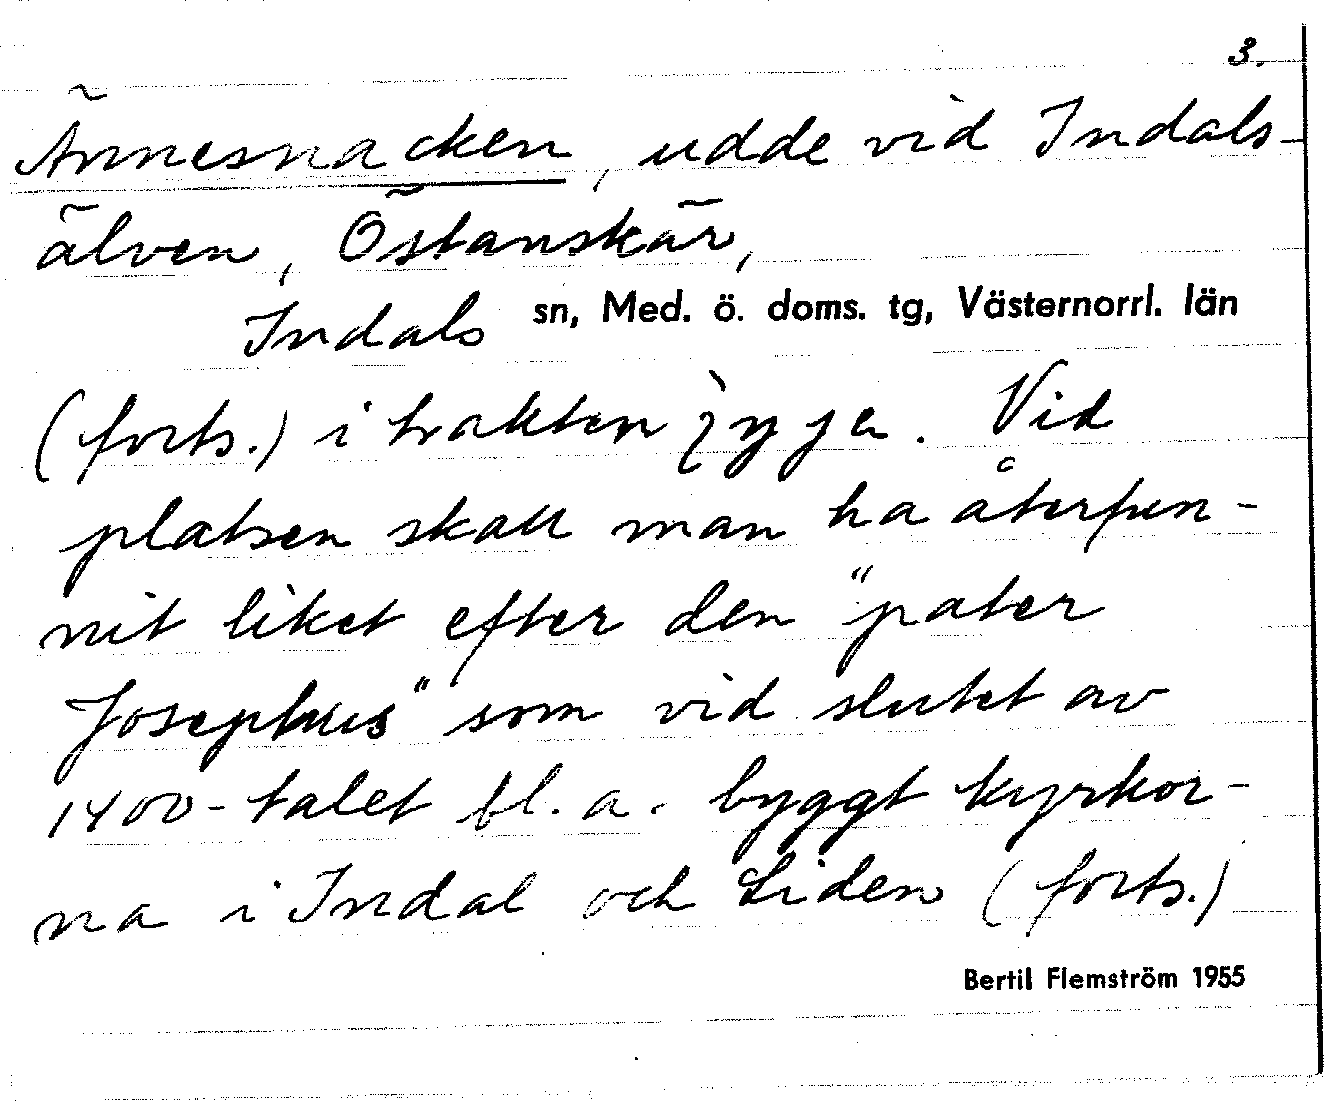 3.
Ännesnacken, udde vid Indals-
älven, Östanskär,
Indals sn, Med. ö. doms. tg, Västernorrl. län
(forts.) i trakten
Vid
platsen skall man ha återfun-
nit liket efter den "pater
Josephus" som vid slutet av
1400-talet bl.a. byggt kyrkor-
na i Indal och Liden (forts.)
Bertil Flemström 1955